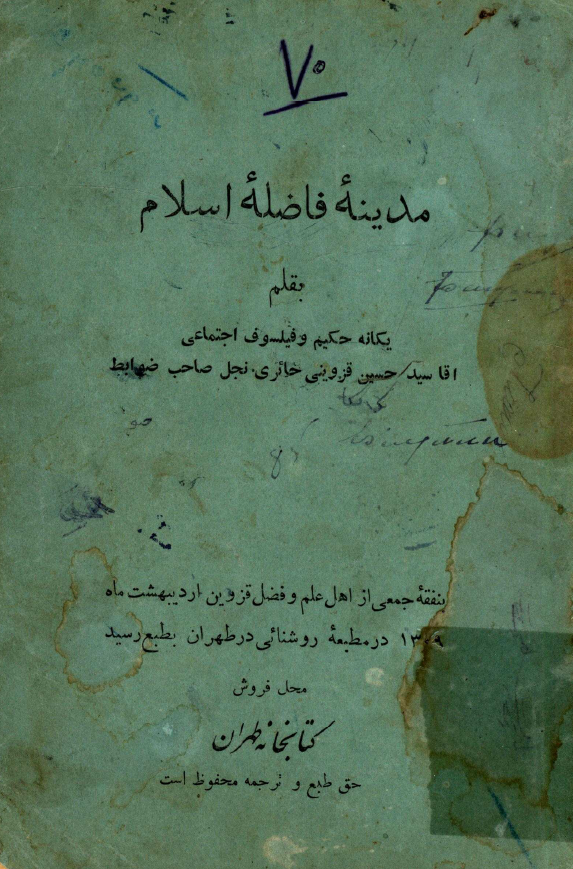 ۷۰
مدینهٔ فاضلهٔ اسلام
بقلم
یکانه حکیم و فیلسوف اجتماعی
اقا سید حسین قزوینی حائری نجل صاحب ضوابط
بنفقهٔ جمعی از اهل علم و فضل قزوین اردیبهشت ماه
۱۳۰۹ در مطبعهٔ روشنائی در طهران بطبع رسید
محل فروش
کتابخانه طهران
حق طبع و ترجمه محفوظ است